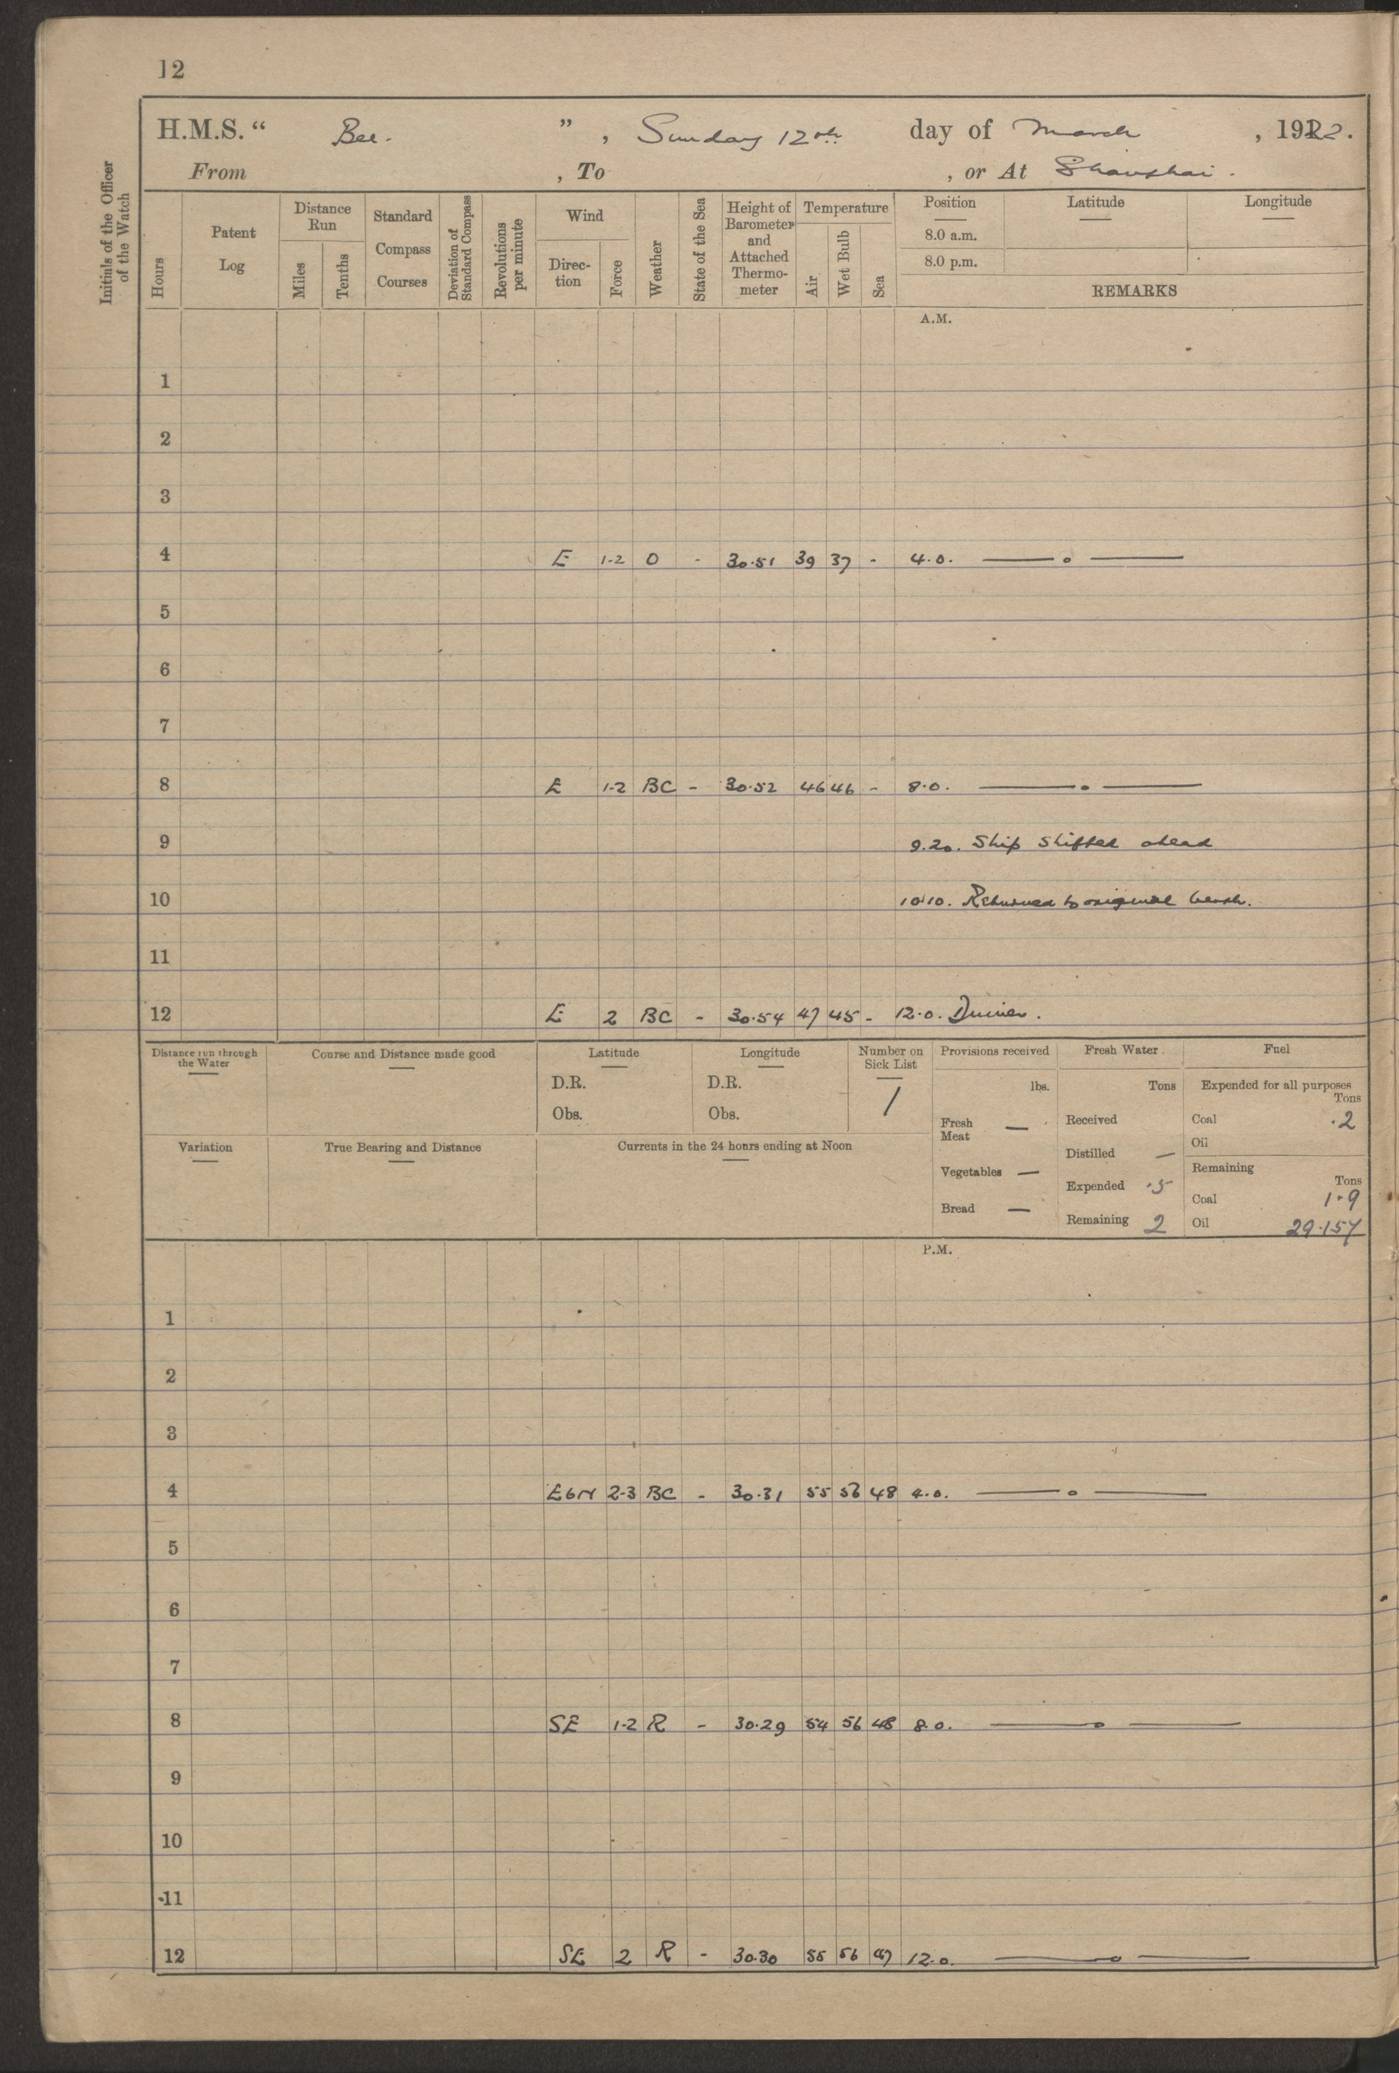 12
H.M.S. " Bee. " , Sunday 12th day of March , 1922.
From , To , or At Shanghai .
Initials of the Officer of the Watch
Hours
Patent Log
Distance Run
Miles
Tenths
Standard Compass Courses
Deviation of Standard Compass
Revolutions per minute
Wind
Direc-tion
Force
Weather
State of the Sea
Height of Barometer and Attached Thermo-meter
Temperature
Air
Wet Bulb
Sea
Position
Latitude
Longitude
8.0 a.m.
8.0 p.m.
REMARKS
A.M.
1
2
3
4 E 1-2 O - 30.51 39 37 - 4.0. —— o ——
5
6
7
8 E 1-2 BC - 30.52 46 46 - 8.0. —— o ——
9 9.20. Ship Shifted ahead
10 10.10. Returned to original berth.
11
12 E 2 BC - 30.54 47 45 - 12.0.
Distance run through the Water
Course and Distance made good
Latitude
D.R.
Obs.
Longitude
D.R.
Obs.
Number on Sick List
1
Provisions received
lbs.
Fresh Meat —
Vegetables —
Bread —
Fresh Water
Tons
Received
Distilled —
Expended .5
Remaining 2
Fuel
Expended for all purposes
Tons
Coal .2
Oil
Remaining
Tons
Coal 1.9
Oil 29.157
Variation
True Bearing and Distance
Currents in the 24 hours ending at Noon
P.M.
1
2
3
4 EbN 2-3 BC - 30.31 55 56 48 4.0. —— o ——
5
6
7
8 SE 1-2 R - 30.29 54 56 48 8.0. —— o ——
9
10
11
12 SE 2 R - 30.30 55 56 47 12.0. —— o ——